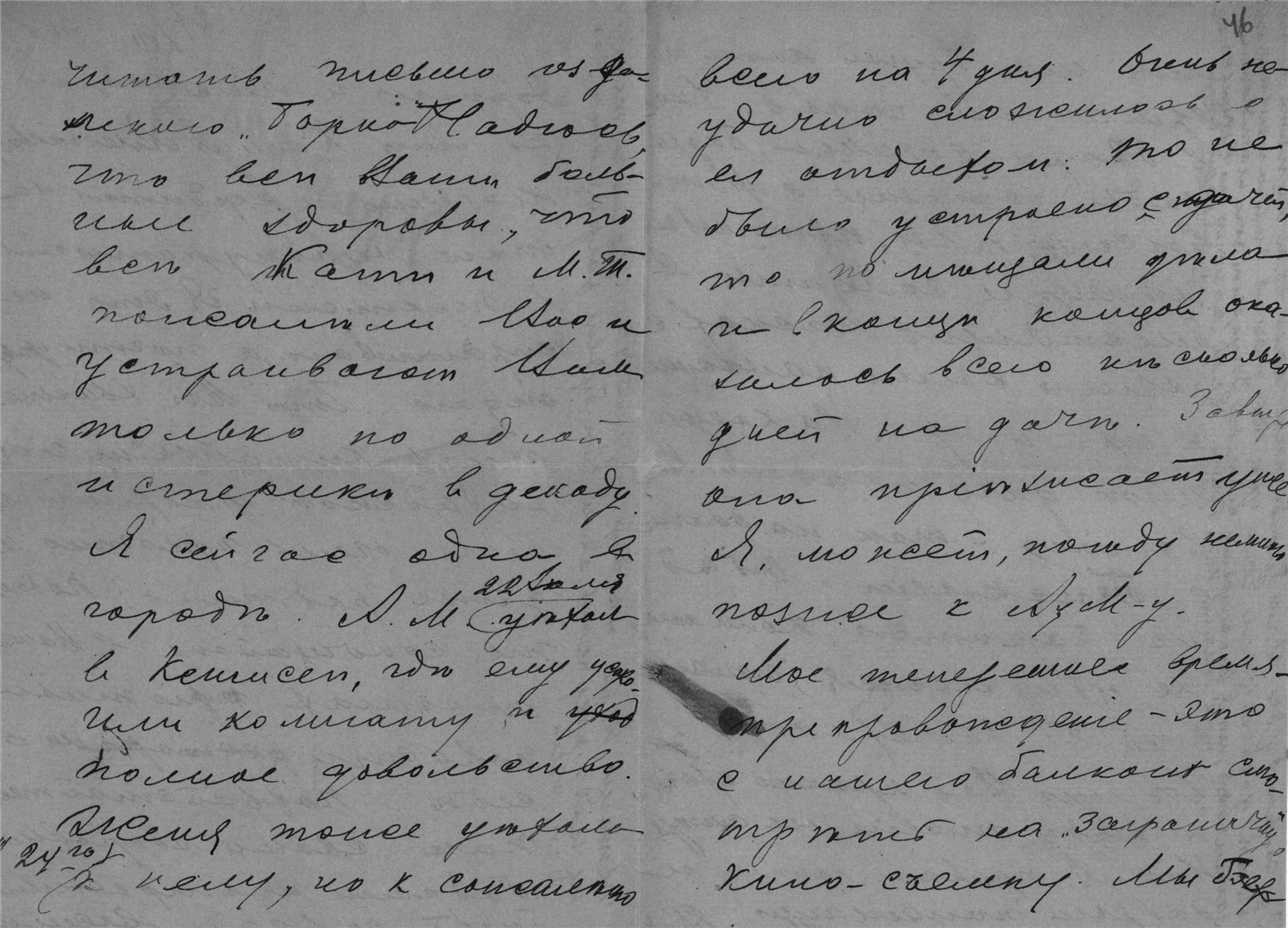 читать письмо
"Гарно" Надѣюсь,
что всѣ Ваши боль-
ные здоровы, что
всѣ Кати и М.Т.
пожалѣли Вас и
устраивают Вам
только по одной
истерикѣ в декаду.
Я сейчас одна в
городѣ. А.М. 22 Июля уѣхал
в Кемисеп, гдѣ ему устро-
или комнату и
полное довольство.
Женя тоже уѣхала
24го к нему, но к сожалѣнію
46
всего на 4 дня. Очень не-
удачно сложилось с
ея отдыхом: то не
было устроено с дачей
то по мѣщали дѣла
и в концѣ концов ока-
залось всего нѣсколько
дней на дачѣ. Завтра
она пріѣзжает уже
Я, может, поѣду немного
позже к А.М-у.
Мое теперешнее время-
препровожденіе - это
с нашего балкона смо-
трѣть на "заграничную"
кино-съемку. Мы